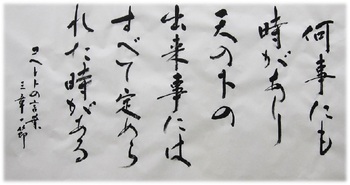 何事にも
時があり
天の下の
出来事には
すべて定めら
れた時がある
コヘレトの言葉
三章一節